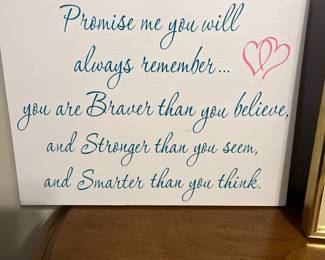 Promise me you will
always remember...
you are Braver than you believe,
and Stronger than you seem,
and Smarter than you think.